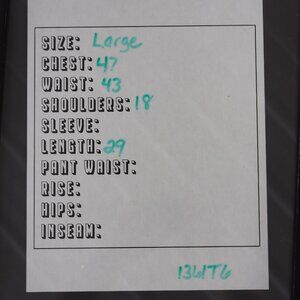 SIZE: Large
CHEST: 47
WAIST: 43
SHOULDERS: 18
SLEEVE:
LENGTH: 29
PANT WAIST:
RISE:
HIPS:
INSEAM:
1361T6